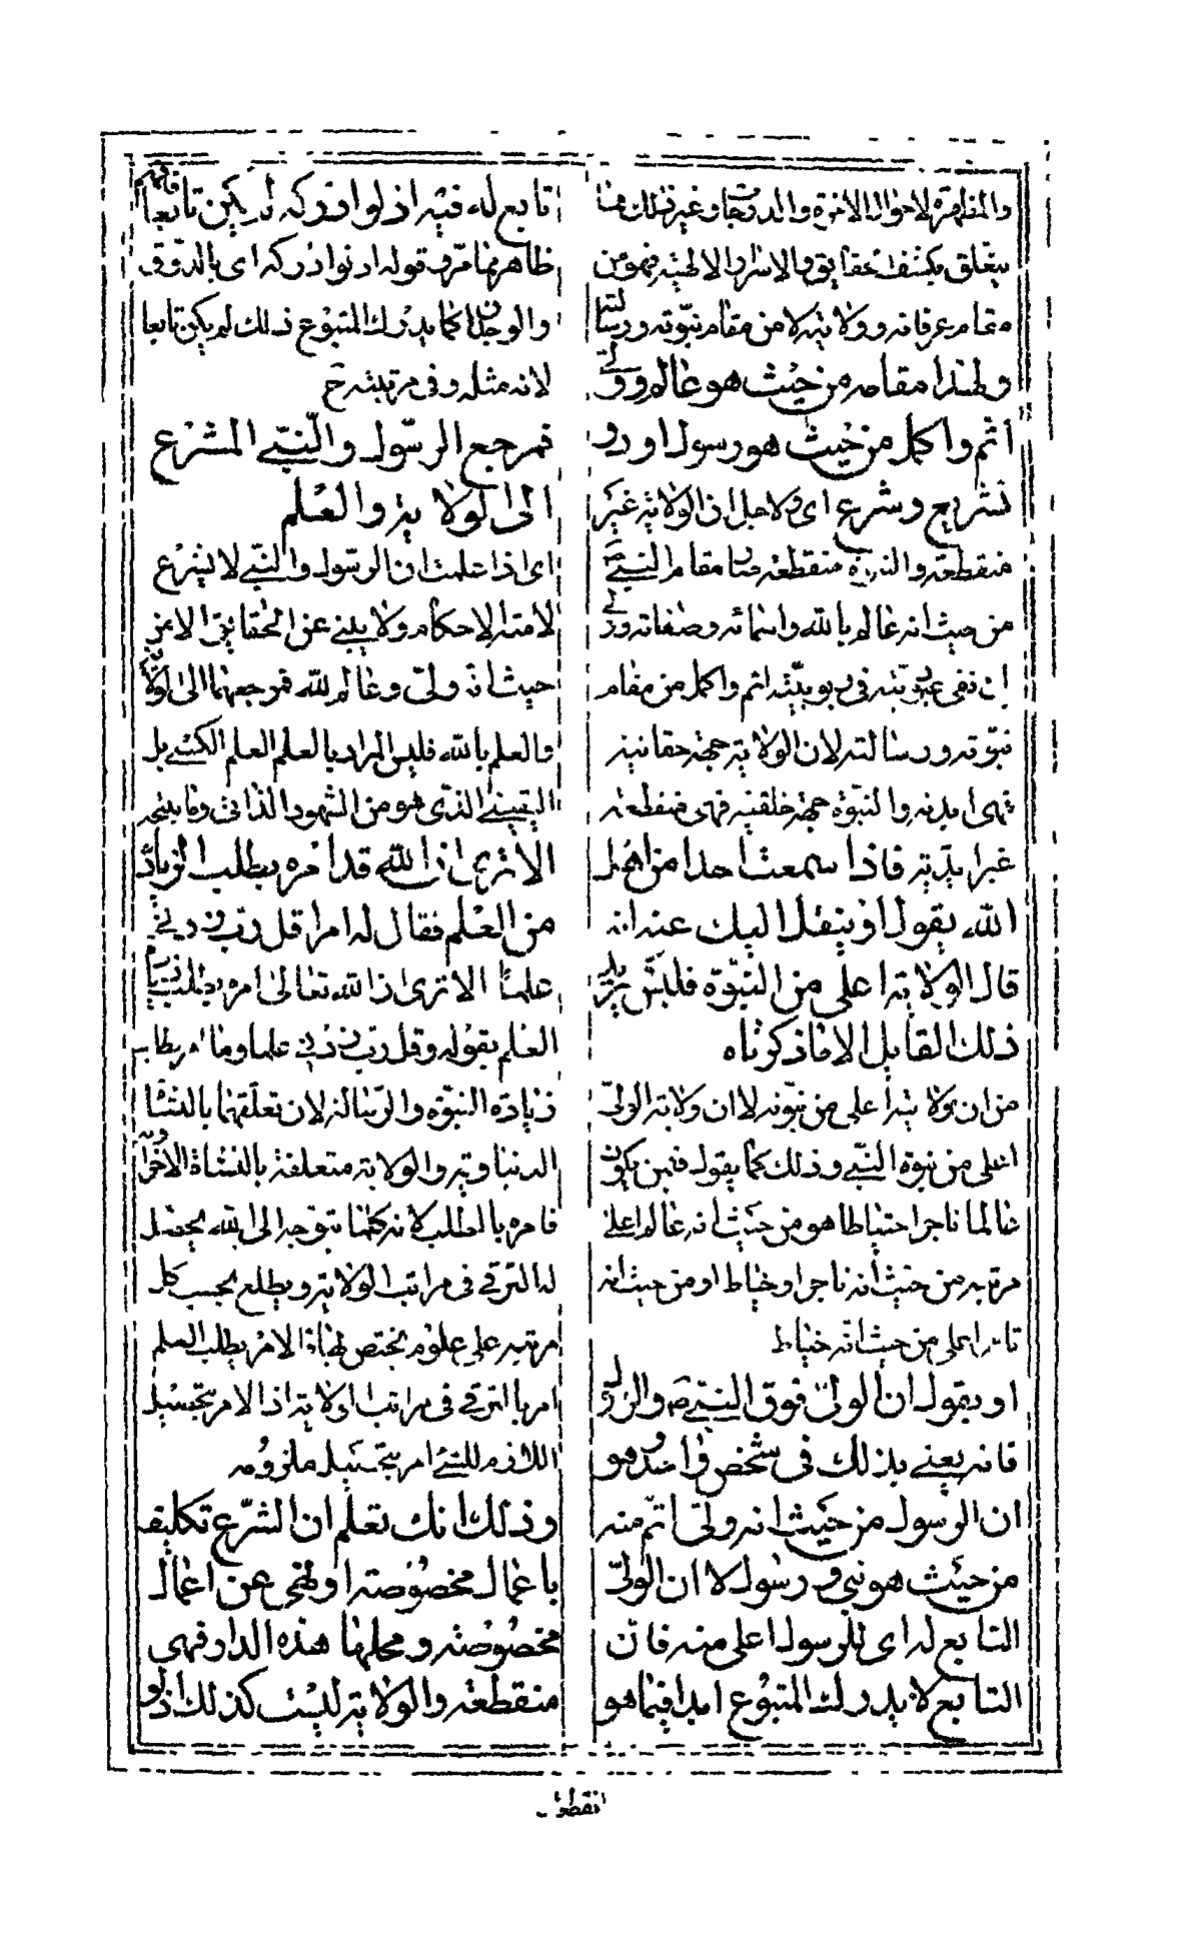 والمظهرة لاحوال الآخرة والدرجات وغير ذلك مما
يتعلق بكشف الحقايق والاسرار الالهية فهو من
مقام عرفانه وولايته لا من مقام نبوته ورسالته
ولهذا مقامه من حيث هو عالم وولى
اتم واكمل من حيث هو رسول او ذو
تشريع وشرع اى ولاجل ان الولاية غير
منقطعة والنبوة منقطعة صار مقام النبى
من حيث انه عالم بالله واسمائه وصفاته وولى
نفى عبوديته فى ربوبيته اتم واكمل من مقام
نبوته ورسالته لان الولاية جهة حقانية
فهى ابدية والنبوة جهة خلقية فهى منقطعة
غير ابدية فاذا سمعت احدا من اهل
الله يقول او ينقل اليك عنه انه
قال الولاية اعلى من النبوة فليس يريد
ذلك القايل الا ما ذكرناه
من ان ولايته اعلى من نبوته لا ان ولاية الولىّ
اعلى من نبوة النبى وذلك كما يقول فيمن يكون
عالما تاجرا خياطا هو من حيث انه عالم اعلى
مرتبة من حيث انه تاجر او خياط او من حيث انه
تاجر اعلى من حيث انه خياط
او يقول ان الولىّ فوق النبى والرسول
فانه يعنى بذلك فى شخص واحد وهو
ان الرسول من حيث انه ولى اتمّ منه
من حيث هو نبى ورسول لا ان الولىّ
التابع له اى للرسول اعلى منه فان
التابع لا يدرك المتبوع ابدا فيما هو
تابع له فيه اذ لو ادركه لم يكن تابعا فافهم
ظاهر مما مرّ وقوله اذ لو ادركه اى بالذّوق
والوجدان كما يدرك المتبوع ذلك لم يكن تابعا
لانه مثله وفى مرتبته ح
فمرجع الرسول والنّبى المشرع
الى الولاية والعلم
اى اذا علمت ان الرسول والنبى لا يشرع
لامته الاحكام ولا ينبى عن الحقايق الا من
حيث انه ولىّ وعالم لله فمرجعهما الى الولاية
والعلم بالله فليس المراد بالعلم العلم الكسبى بل
اليقينى الذى هو من الشهود الذاتى وما ينتجه
الا ترى ان الله قد امره بطلب الزيادة
من العلم فقال له امرا قل ربّ زدنى
علما الا ترى ان الله تعالى امره بطلب زيادة
العلم بقوله وقل ربّ زدنى علما وما امر بطلب
زيادة النبوة والرسالة لان تعلّقهما بالنشأة
الدنياوية والولاية متعلقة بالنشاة الاخروية
فامره بالطلب لانه كلما يتوجه الى الله يحصل
له الترقى فى مراتب الولاية ويطلع بحسب كل
مرتبة على علوم يختص لها فالامر بطلب العلم
امر بالترقى فى مراتب الولاية اذ الامر بتحصيل
اللازم للشئ امر بتحصيل ملزومه
وذلك انك تعلم ان الشرع تكليف
باعمال مخصوصة او نهى عن اعمال
مخصوصة ومحلها هذه الدار فهى
منقطعة والولاية ليست كذلك اذ لو
انقطعت